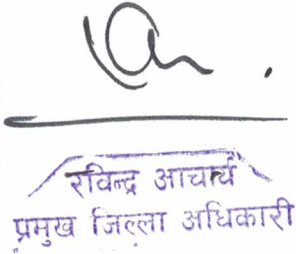 रविन्द्र आचार्य
प्रमुख जिल्ला अधिकारी